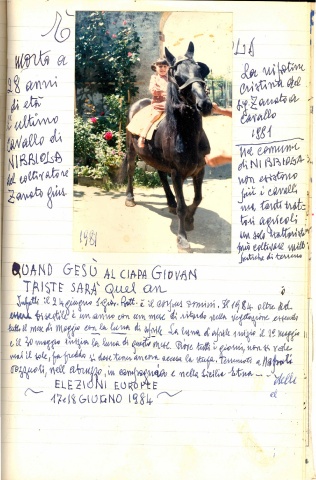 È
LIA
Morto a
28 anni
di età
l'ultimo
cavallo di
NIBBIOLA
del coltivatore
Zanoto Giu
La nipotina
cristina del
sig Zanoto a
cavallo
1981
nel comune
di NIBBIOLA
non esistono
più i cavalli
ma tanti trat
tori agricoli
un solo trattorista
può coltivare mille
pertiche di terreno
1981
QUAND GESÙ AL CIAPA GIOVAN
TRISTE SARÀ quel an
Infatti il 24 giugno è il corpus domini. Il 1984 oltre ad
è un anno con un mese di ritardo nella vegetazione essendo
tutto il mese di Maggio con la luna di aprile. La luna di aprile inizia il 1° maggio
e il 30 maggio inizia la luna di questo mese. Piove tutti i giorni, non si vede
mai il sole, fa freddo si deve tenere ancora accesa la stufa. Terremoti a Napoli
Pozzuoli, nell'abruzzo, in campania e nella Sicilia Etna
ELEZIONI EUROPEE
17 e 18 GIUGNO 1984